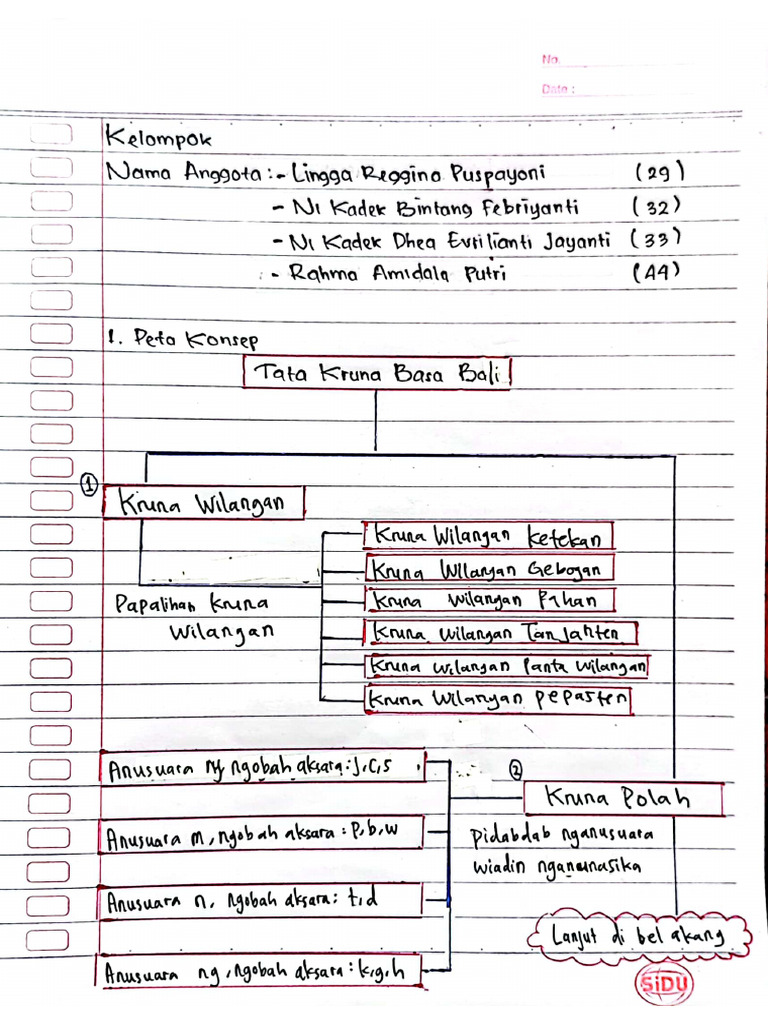 No.
Date :
Kelompok
Nama Anggota :- Lingga Reggina Puspayoni (29)
- Ni Kadek Bintang Febriyanti (32)
- Ni Kadek Dhea Evrilianti Jayanti (33)
- Rahma Amidala Putri (44)
1. Peta Konsep
Tata Kruna Basa Bali
1
Kruna Wilangan
Papalihan Kruna
Wilangan
Kruna Wilangan Ketekan
Kruna Wilangan Gebogan
Kruna Wilangan Pahan
Kruna Wilangan Tan Janten
Kruna Wilangan Panta Wilangan
Kruna Wilangan Pepasten
2
Kruna Polah
pidabdab nganusuara
wiadin nganunasika
Anusuara ny ngobah aksara : j, c, s
Anusuara m, ngobah aksara : p, b, w
Anusuara n, ngobah aksara : t, d
Anusuara ng, ngobah aksara : k, g, h
Lanjut di belakang
SiDU